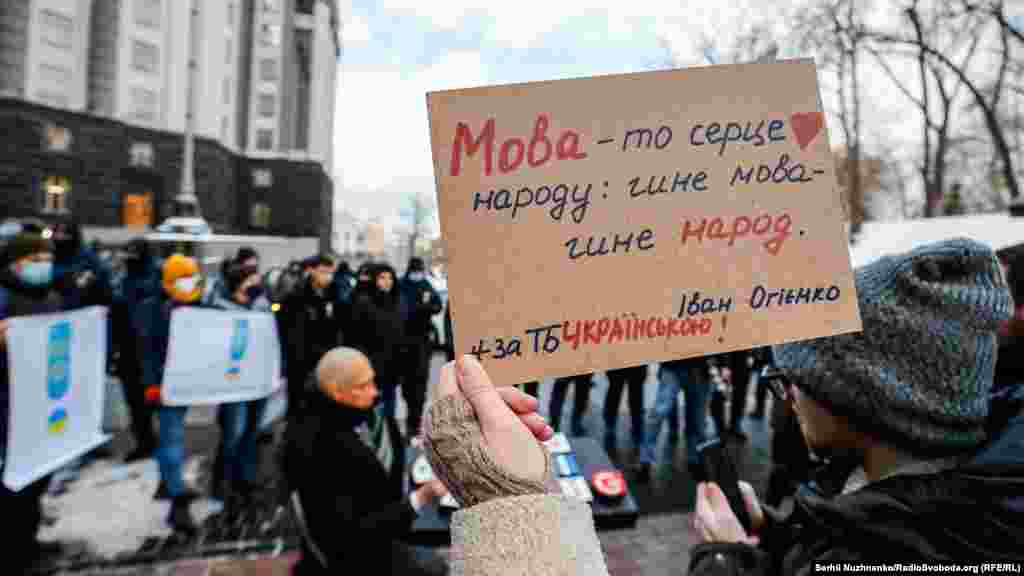 Мова - то серце
народу: гине мова-
гине народ.
Іван Огієнко
#заТБУКРАЇНСЬКОЮ!
Serhii Nuzhnenko/RadioSvoboda.org (RFE/RL)